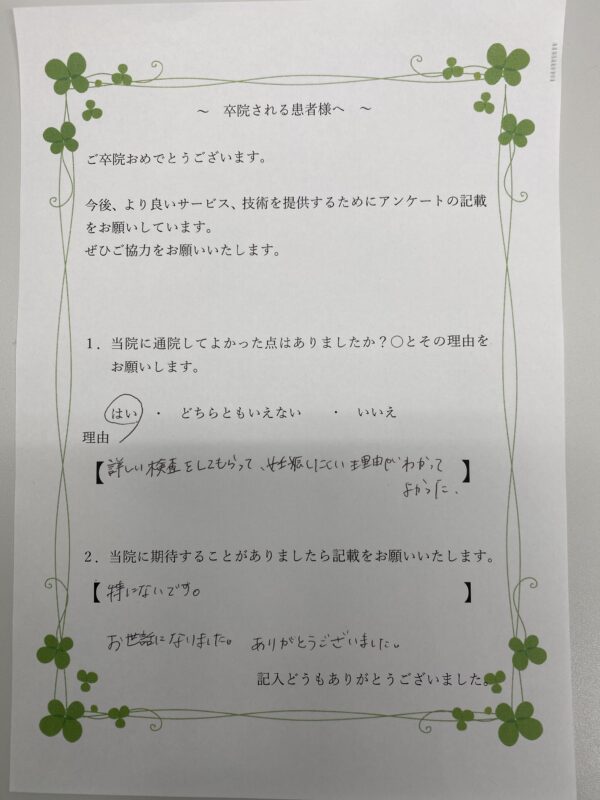 ～ 卒院される患者様へ ～
ご卒院おめでとうございます。
今後、より良いサービス、技術を提供するためにアンケートの記載
をお願いしています。
ぜひご協力をお願いいたします。
１．当院に通院してよかった点はありましたか？〇とその理由を
お願いします。
はい ・ どちらともいえない ・ いいえ
理由
【詳しい検査をしてもらって、妊娠しにくい理由がわかって
よかった。】
２．当院に期待することがありましたら記載をお願いいたします。
【特にないです。】
お世話になりました。 ありがとうございました。
記入どうもありがとうございました。